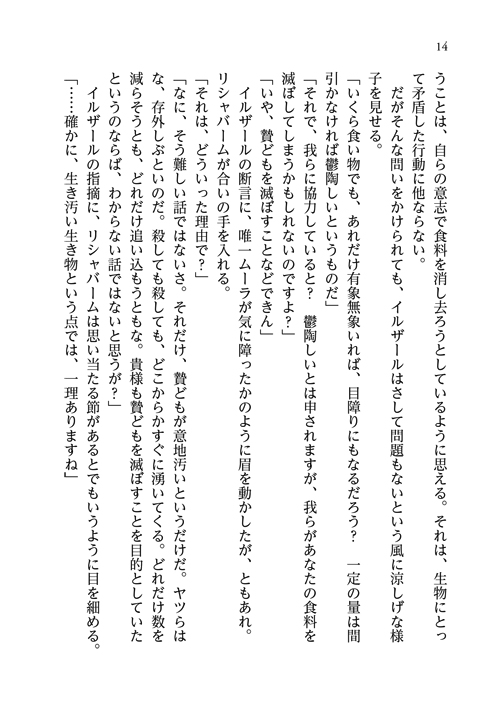 14
うことは、自らの意志で食料を消し去ろうとしているように思える。それは、生物にとっ
て矛盾した行動に他ならない。
　だがそんな問いをかけられても、イルザールはさして問題もないという風に涼しげな様
子を見せる。
「いくら食い物でも、あれだけ有象無象いれば、目障りにもなるだろう？　一定の量は間
引かなければ鬱陶しいというものだ」
「それで、我らに協力していると？　鬱陶しいとは申されますが、我らがあなたの食料を
滅ぼしてしまうかもしれないのですよ？」
「いや、贄どもを滅ぼすことなどできん」
　イルザールの断言に、唯一ムーラが気に障ったかのように眉を動かしたが、ともあれ。
リシャバームが合いの手を入れる。
「それは、どういった理由で？」
「なに、そう難しい話ではないさ。それだけ、贄どもが意地汚いというだけだ。ヤツらは
な、存外しぶといのだ。殺しても殺しても、どこからかすぐに湧いてくる。どれだけ数を
減らそうとも、どれだけ追い込もうともな。貴様も贄どもを滅ぼすことを目的としていた
というのならば、わからない話ではないと思うが？」
　イルザールの指摘に、リシャバームは思い当たる節があるとでもいうように目を細める。
「……確かに、生き汚い生き物という点では、一理ありますね」